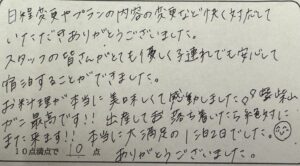 日程変更やプランの内容の変更など快く対応して
いただきありがとうございました。
スタッフの皆さんがとても優しく子連れでも安心して
宿泊することができました。
お料理が本当に美味しくて感動しました。
ガニ最高です!!出産して落ち着いたら絶対に
また来ます!!本当に大満足の1泊2日でした。
10点満点で 10 点 ありがとうございました。